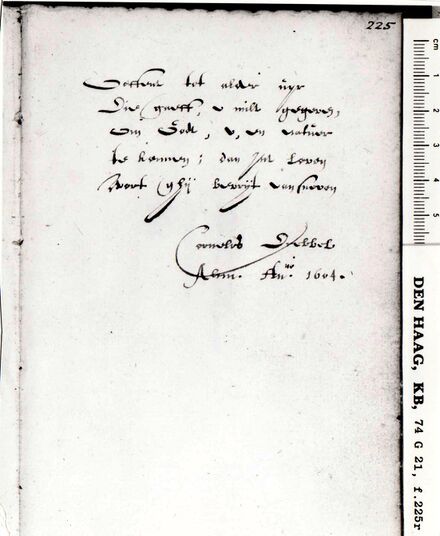 225
Oeffent tot alder uyr
Die gaeff, u milt gegeven,
Om Godt, u, en natuer
te kennen; dan int leven
Wort ghij bevrijt van sneven
Cornelis Drebbel
Alcm. An.no 1604.
cm
1
2
3
4
5
DEN HAAG, KB, 74 G 21, f.225r